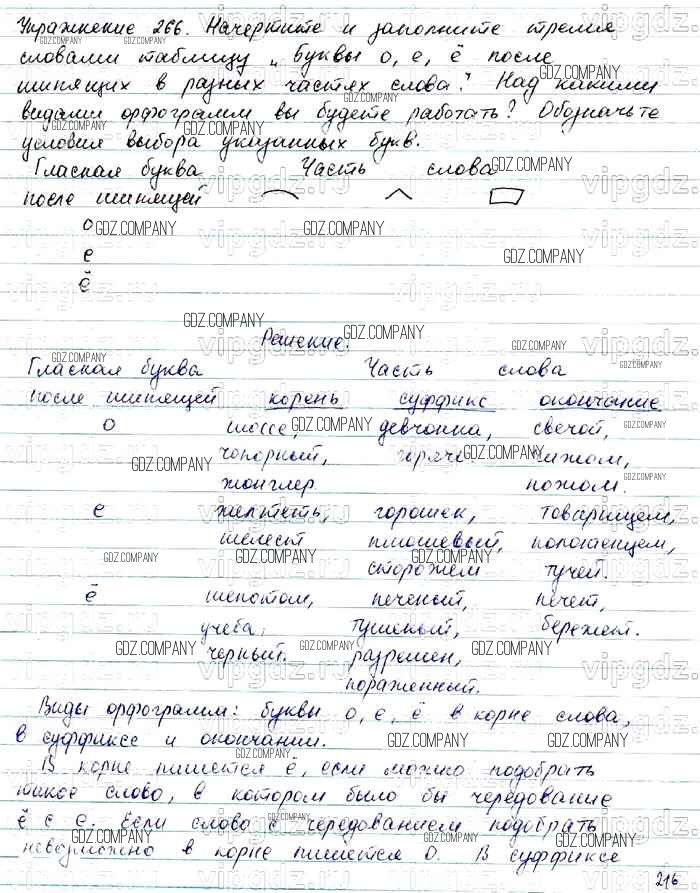 Упражнение 266. Начертите и заполните тремя
словами таблицу „Буквы о, е, ё после
шипящих в разных частях слова." Над какими
видами орфограмм вы будете работать? Обозначьте
условия выбора указанных букв.
Гласная буква Часть слова
после шипящей
о
е
ё
Решение.
Гласная буква Часть слова
после шипящей корень суффикс окончание
о шоссе, девчонка, свечой,
чопорный, чижом,
жонглер ножом.
е желтеть, горошек, товарищем,
шелест плюшевый, полотенцем,
сторожем тучей.
ё шепотом, печеный, печет,
учеба, тушеный, бережет.
черный. разрешен,
пораженный.
Виды орфограмм: буквы о, е, ё в корне слова,
в суффиксе и окончании.
В корне пишется ё, если можно подобрать
такое слово, в котором было бы чередование
ё с е. Если слово с чередованием подобрать
невозможно в корне пишется о. В суффиксе
216